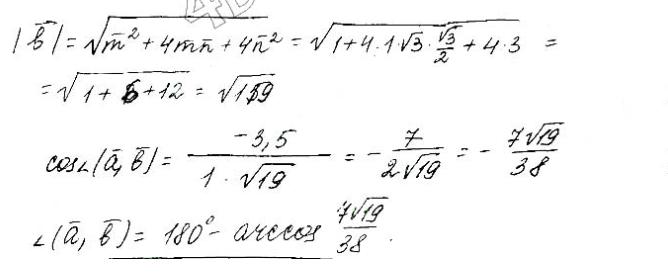 |b̄| = √(m̄² + 4m̄n̄ + 4n̄²) = √(1 + 4·1·√3·√3/2 + 4·3) =
= √(1 + 6 + 12) = √19
cos∠(ā, b̄) = -3,5/(1·√19) = -7/(2√19) = -7√19/38
∠(ā, b̄) = 180° - arccos 7√19/38.